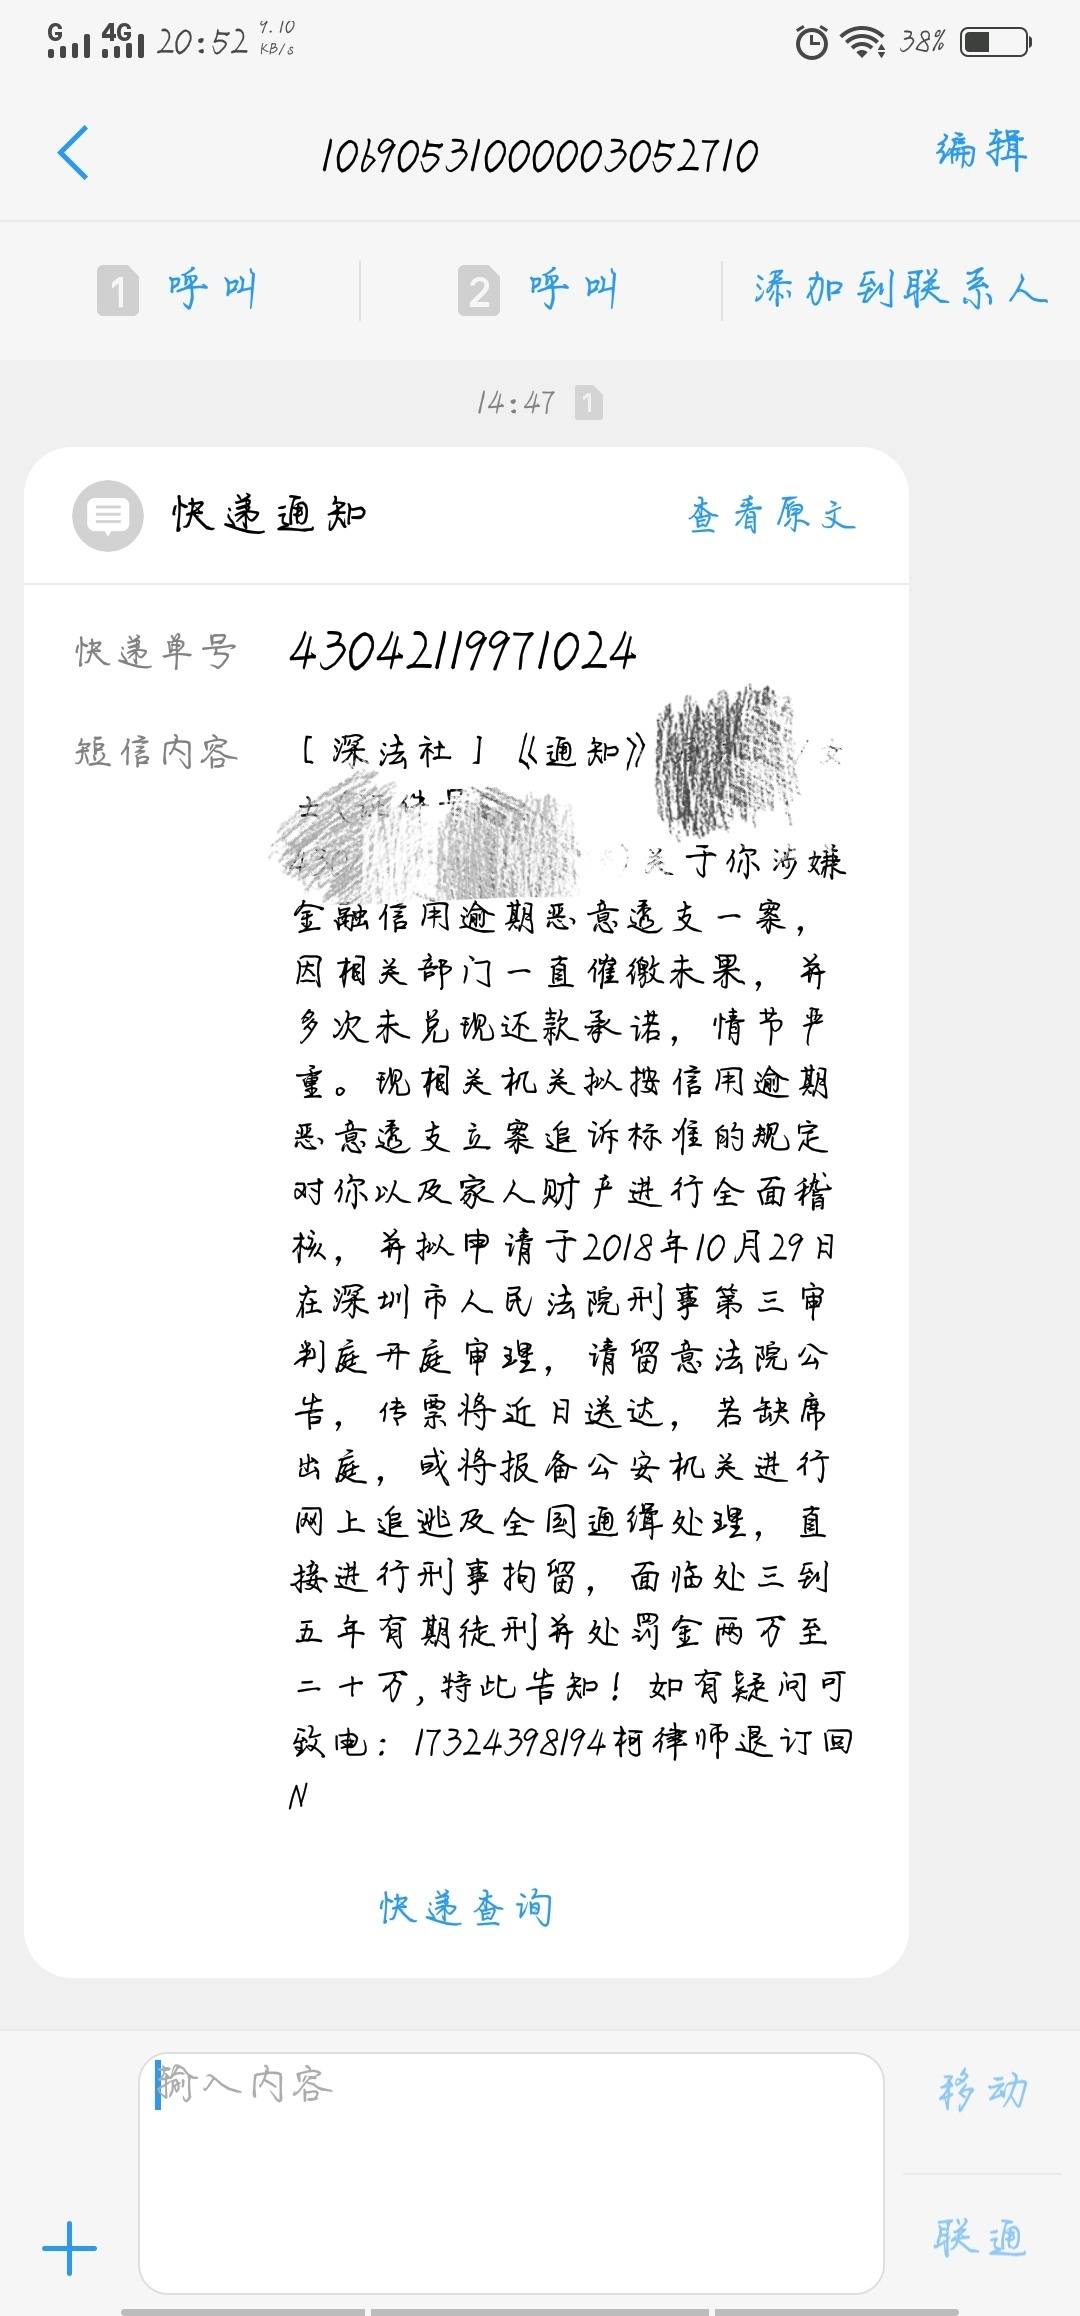 G 4G 20:52 9.10 KB/s 38%
10690531000003052710 编辑
1 呼叫 2 呼叫 添加到联系人
14:47 1
快递通知 查看原文
快递单号 43042119971024
短信内容 [深法社]《通知》 /女
士(证件号
430 )关于你涉嫌
金融信用逾期恶意透支一案,
因相关部门一直催缴未果,并
多次未兑现还款承诺,情节严
重。现相关机关拟按信用逾期
恶意透支立案追诉标准的规定
对你以及家人财产进行全面稽
核,并拟申请于2018年10月29日
在深圳市人民法院刑事第三审
判庭开庭审理,请留意法院公
告,传票将近日送达,若缺席
出庭,或将报备公安机关进行
网上追逃及全国通缉处理,直
接进行刑事拘留,面临处三到
五年有期徒刑并处罚金两万至
二十万,特此告知!如有疑问可
致电:17324398194柯律师退订回
N
快递查询
输入内容
移动
联通